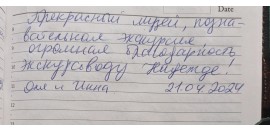 Date
Прекрасный музей, позна-
вательная экскурсия
огромная благодарность
экскурсоводу Надежде!
Оля и Инна 21.04.2024